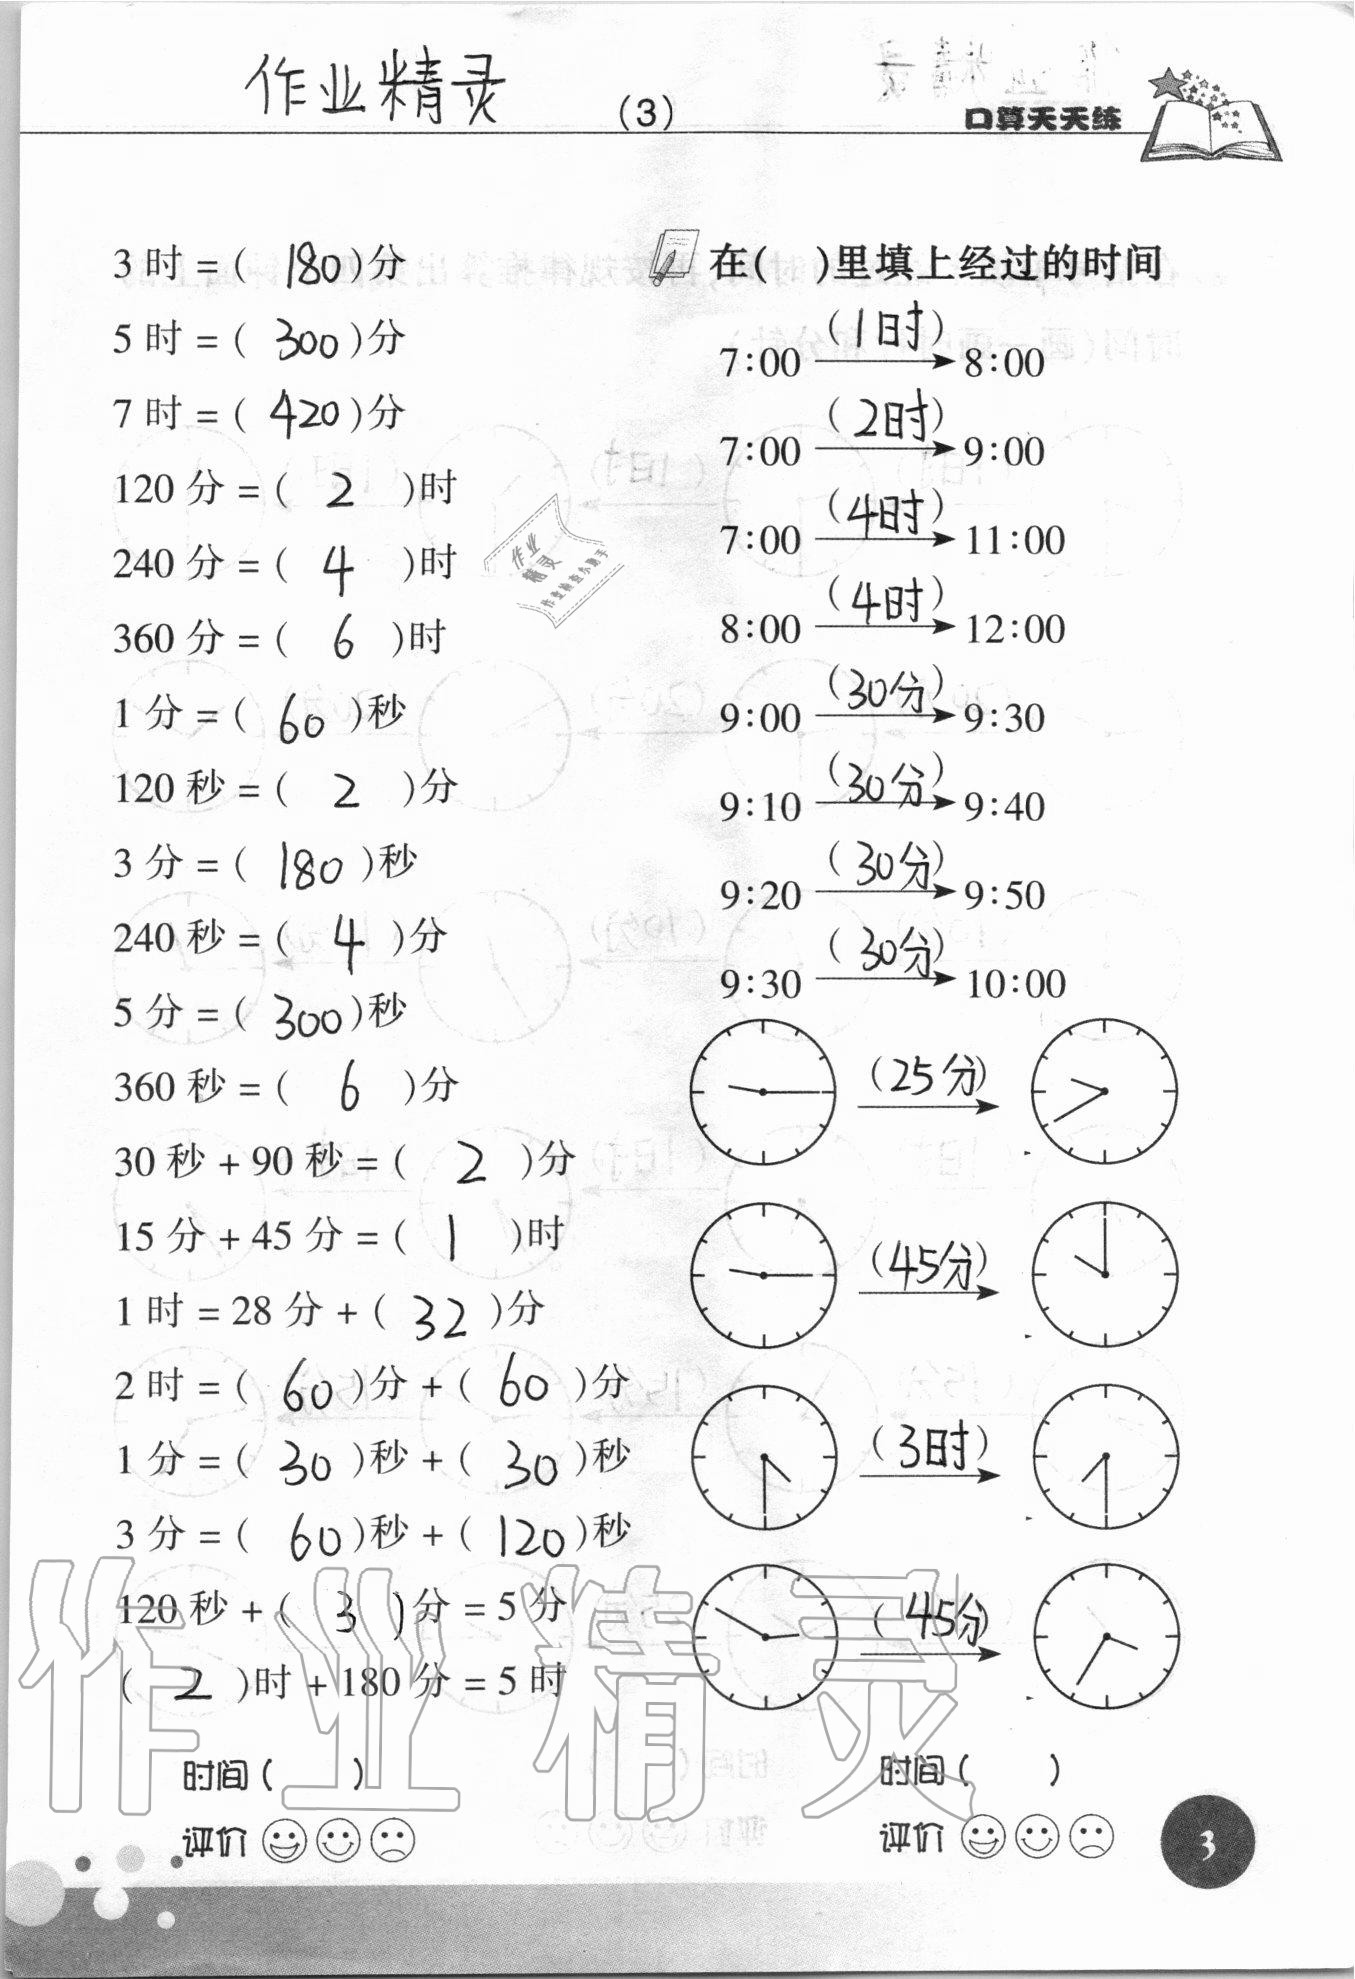 作业精灵
(3)
口算天天练
3时=(180)分
5时=(300)分
7时=(420)分
120分=(2)时
240分=(4)时
360分=(6)时
1分=(60)秒
120秒=(2)分
3分=(180)秒
240秒=(4)分
5分=(300)秒
360秒=(6)分
30秒+90秒=(2)分
15分+45分=(1)时
1时=28分+(32)分
2时=(60)分+(60)分
1分=(30)秒+(30)秒
3分=(60)秒+(120)秒
120秒+(3)分=5分
(2)时+180分=5时
时间( )
评价
在( )里填上经过的时间
(1时)
7:00 8:00
(2时)
7:00 9:00
(4时)
7:00 11:00
(4时)
8:00 12:00
(30分)
9:00 9:30
(30分)
9:10 9:40
(30分)
9:20 9:50
(30分)
9:30 10:00
(25分)
(45分)
(3时)
(45分)
时间( )
评价
3
作业
精灵
作业精灵